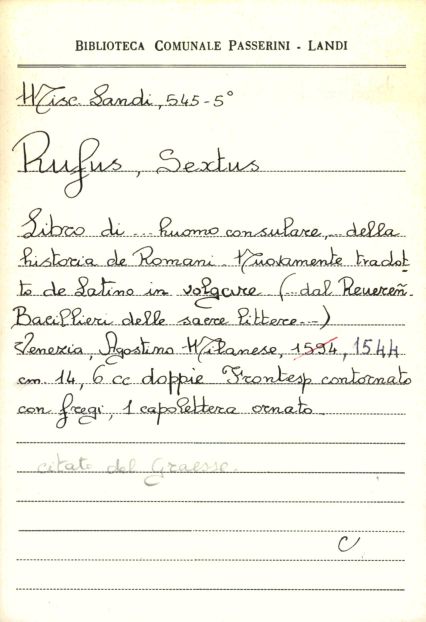 BIBLIOTECA COMUNALE PASSERINI - LANDI
Misc. Landi, 545-5°
Rufus, Sextus
Libro di ... huomo consulare, ... della
historia de Romani. Nuovamente tradot-
to de Latino in volgare (... dal Reuereñ.
Bacillieri delle sacre littere...)
Venezia, Agostino Milanese, 1594, 1544
cm 14, 6 cc doppie Frontesp contornato
con fregi, 1 capolettera ornato.
citato dal Graesse.
C